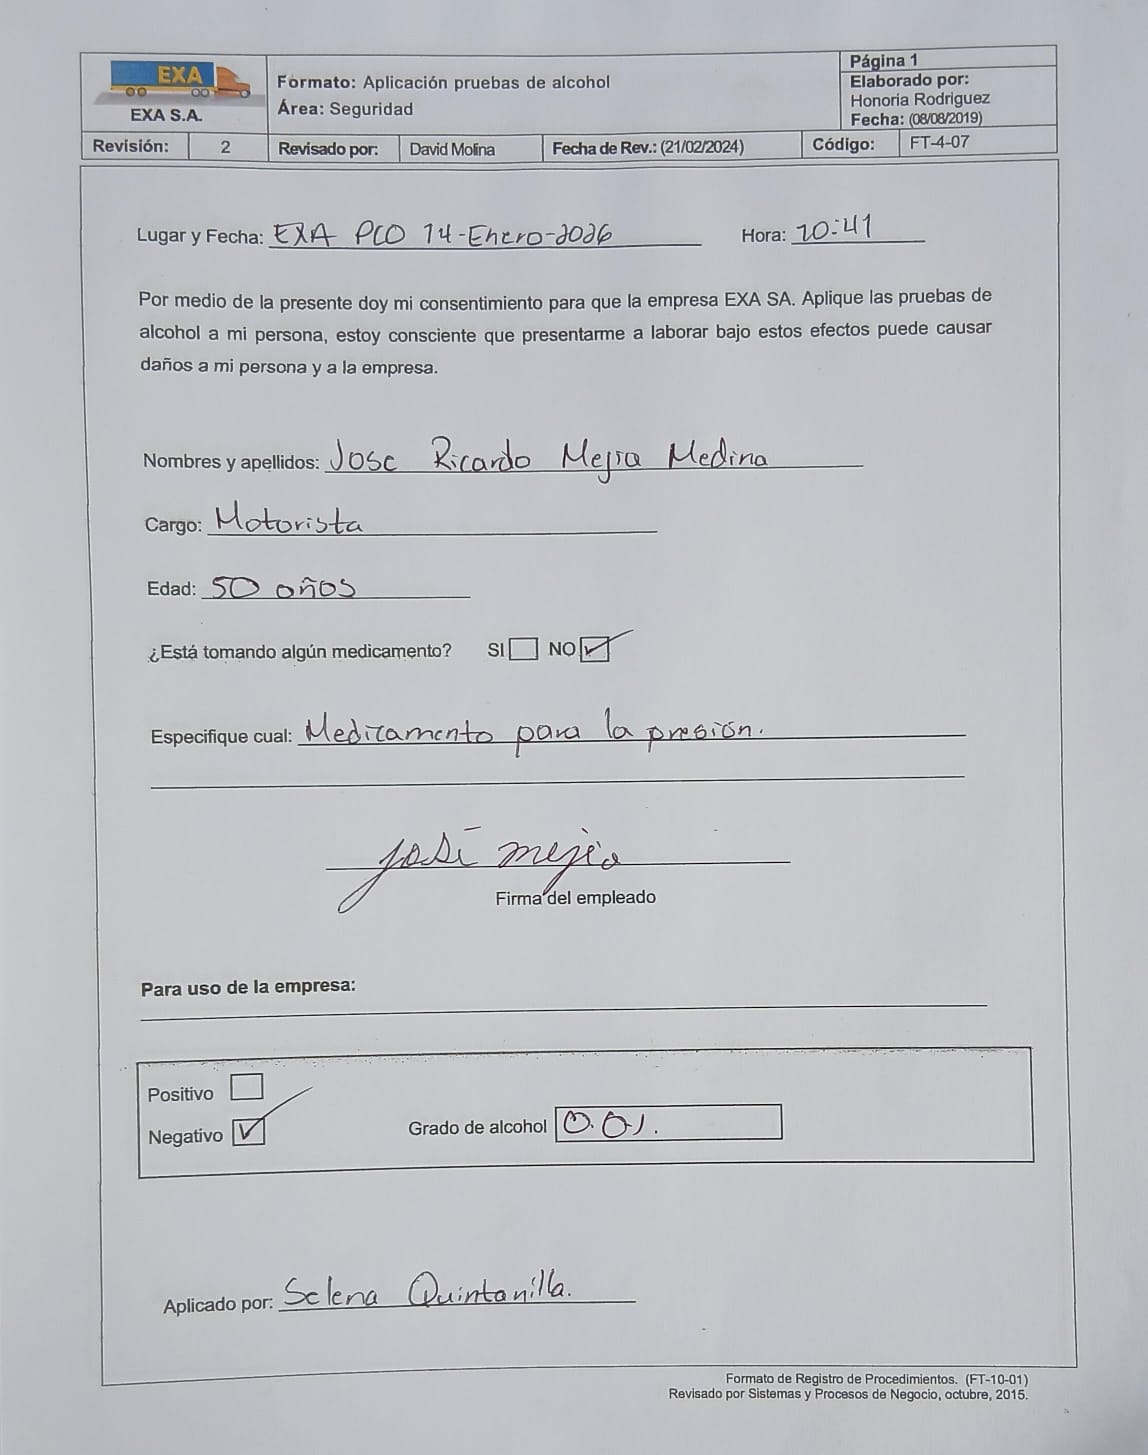 EXA
EXA S.A.
Formato: Aplicación pruebas de alcohol
Área: Seguridad
Página 1
Elaborado por:
Honoria Rodriguez
Fecha: (08/08/2019)
Revisión: 2 Revisado por: David Molina Fecha de Rev.: (21/02/2024) Código: FT-4-07
Lugar y Fecha: EXA PCO 14-Enero-2026 Hora: 10:41
Por medio de la presente doy mi consentimiento para que la empresa EXA SA. Aplique las pruebas de
alcohol a mi persona, estoy consciente que presentarme a laborar bajo estos efectos puede causar
daños a mi persona y a la empresa.
Nombres y apellidos: Jose Ricardo Mejia Medina
Cargo: Motorista
Edad: 50 años
¿Está tomando algún medicamento? SI NO
Especifique cual: Medicamento para la presión.
José mejia
Firma del empleado
Para uso de la empresa:
Positivo
Negativo
Grado de alcohol 0.01.
Aplicado por: Selena Quintanilla.
Formato de Registro de Procedimientos. (FT-10-01)
Revisado por Sistemas y Procesos de Negocio, octubre, 2015.